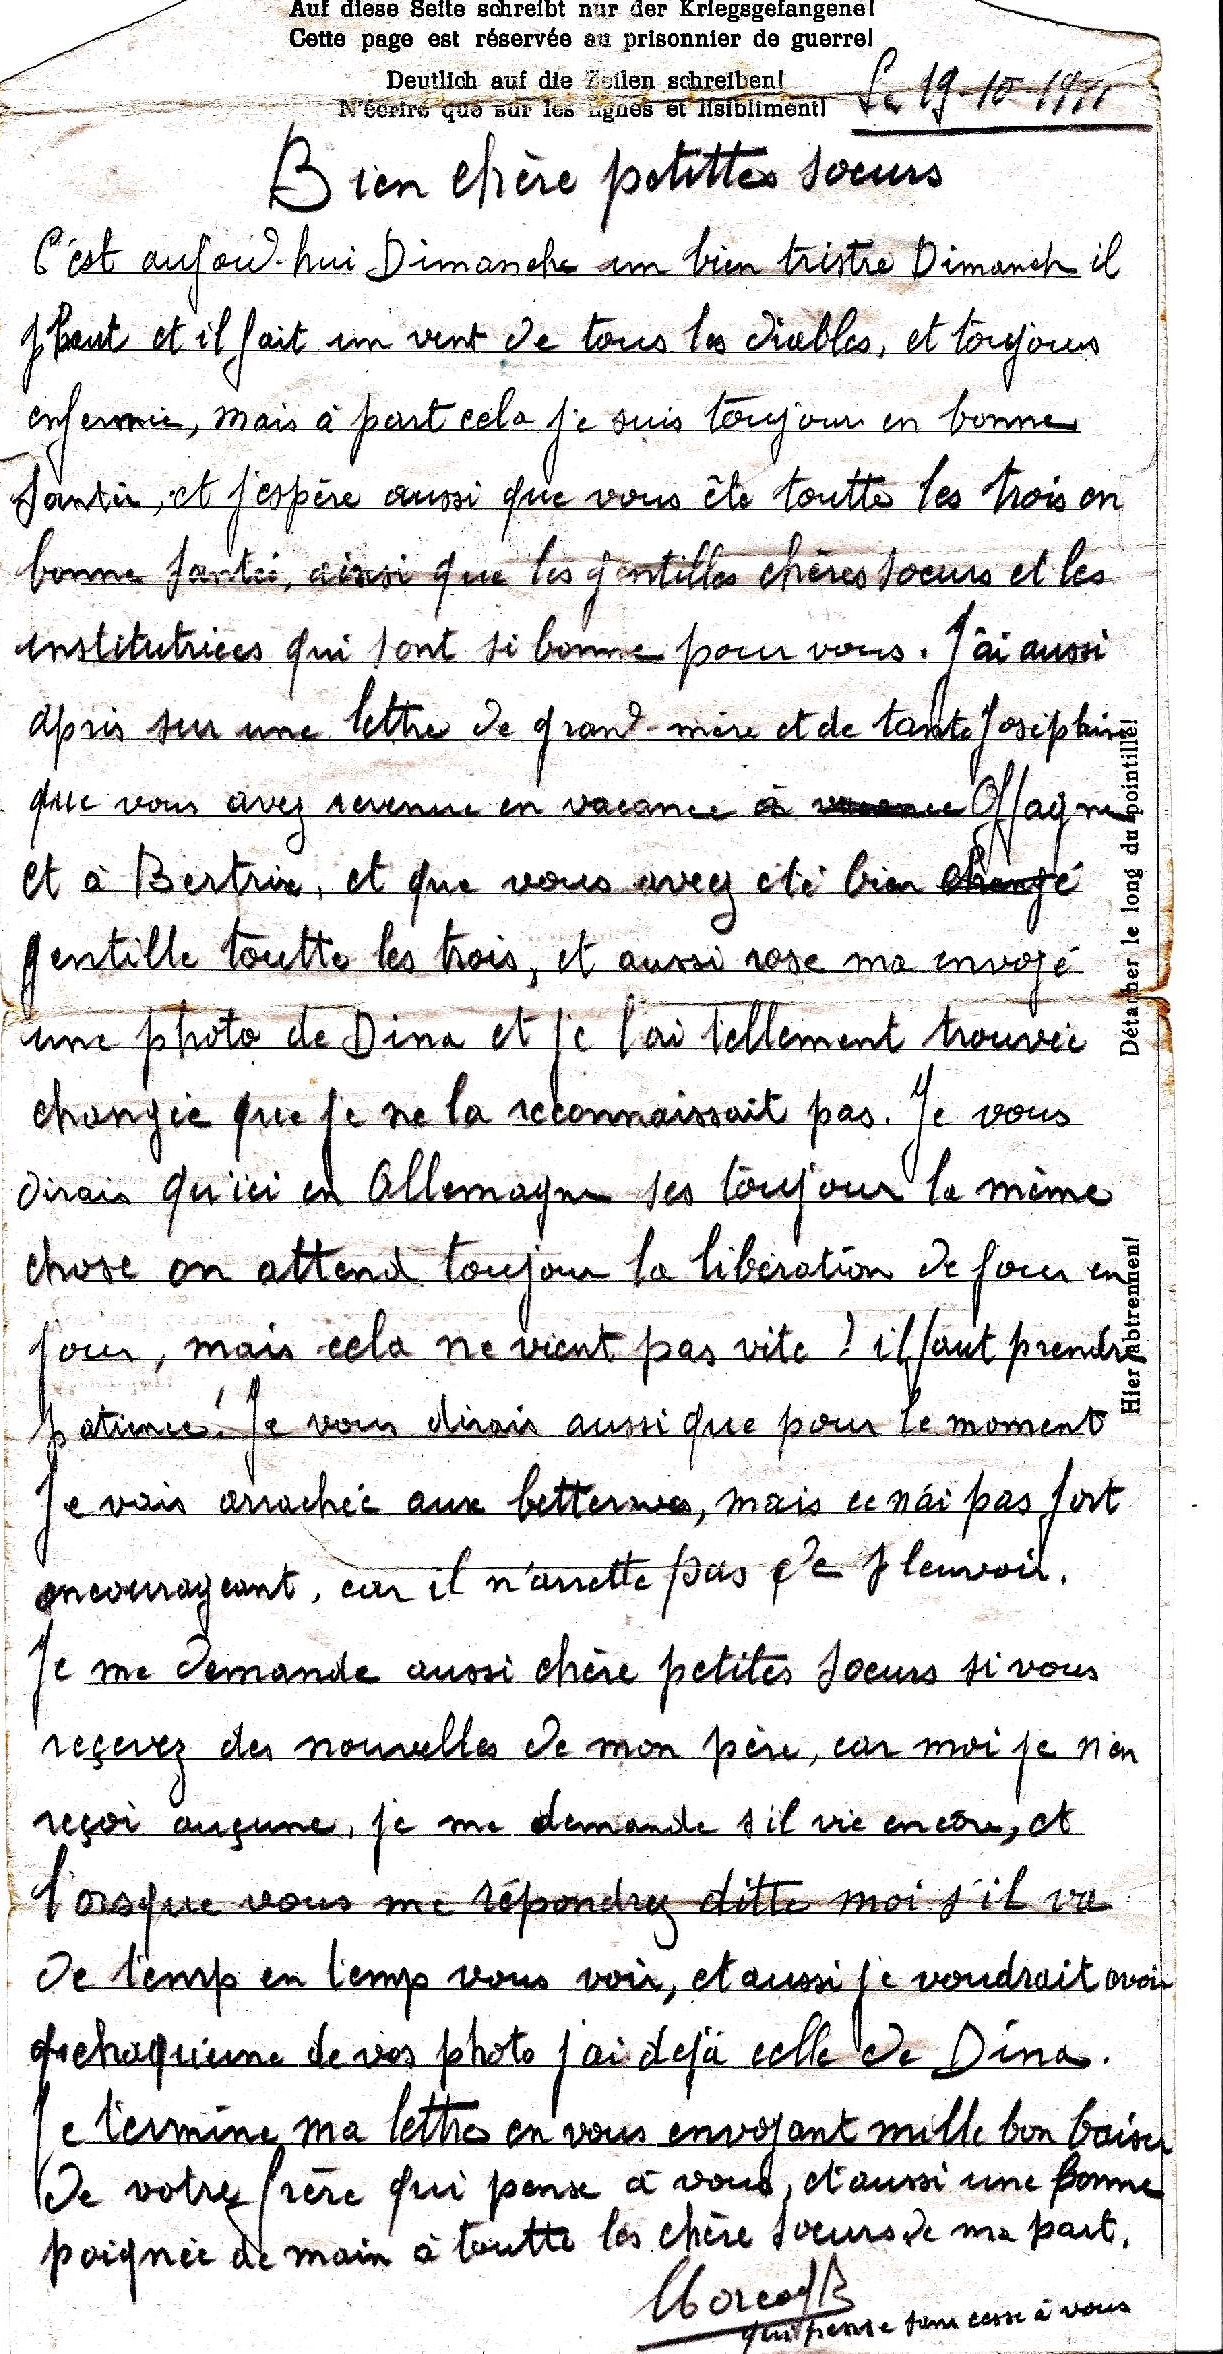 Auf diese Seite schreibt nur der Kriegsgefangene!
Cette page est réservée au prisonnier de guerre!
Deutlich auf die Zeilen schreiben!
N'écrire que sur les lignes et lisiblement!
Le 19-10-1941
Bien chère petittes soeurs
C'est aujoud-hui Dimanche un bien tristre Dimanch il
pleut et il fait un vent de tous les diables, et toujours
enfermée, mais à part cela je suis toujour en bonne
santée, et j'espère aussi que vous ête toutte les trois en
bonne santée, ainsi que les gentilles chères soeurs et les
institutrices qui sont si bonne pour vous. J'ai aussi
apris sur une lettre de grand-mère et de tante Joséphine
que vous avez revenue en vacance à vacance Offagne
et à Bertrix, et que vous avez été bien changé
gentille toutte les trois, et aussi rose ma envoyé
une photo de Dina et je l'ai tellement trouvée
changée que je ne la reconnaissait pas. Je vous
dirais qu'ici en Allemagne ses toujour la même
chose on attend toujour la libération de jour en
jour, mais cela ne vient pas vite! il faut prendre
patience! Je vous dirais aussi que pour le moment
Je vais arrachée aux betteraves, mais ce n'ai pas fort
encourageant, car il n'arrette pas de pleuvoir.
Je me demande aussi chère petites soeurs si vous
reçevez des nouvelles de mon père, car moi je n'en
reçoi auçune, je me demande s'il vie encore, et
lorsque vous me répondrez ditte moi s'il va
de temp en temp vous voir, et aussi je voudrait avoir
de vos photo j'ai dejà celle de Dina.
Je termine ma lettre en vous envoyant mille bon baiser
de votre frère qui pense à vous, et aussi une bonne
poignée de main à toutte les chère soeurs de ma part.
Marcel B
qui pense sans cesse à vous
Détacher le long du pointillé!
Hier abtrennen!